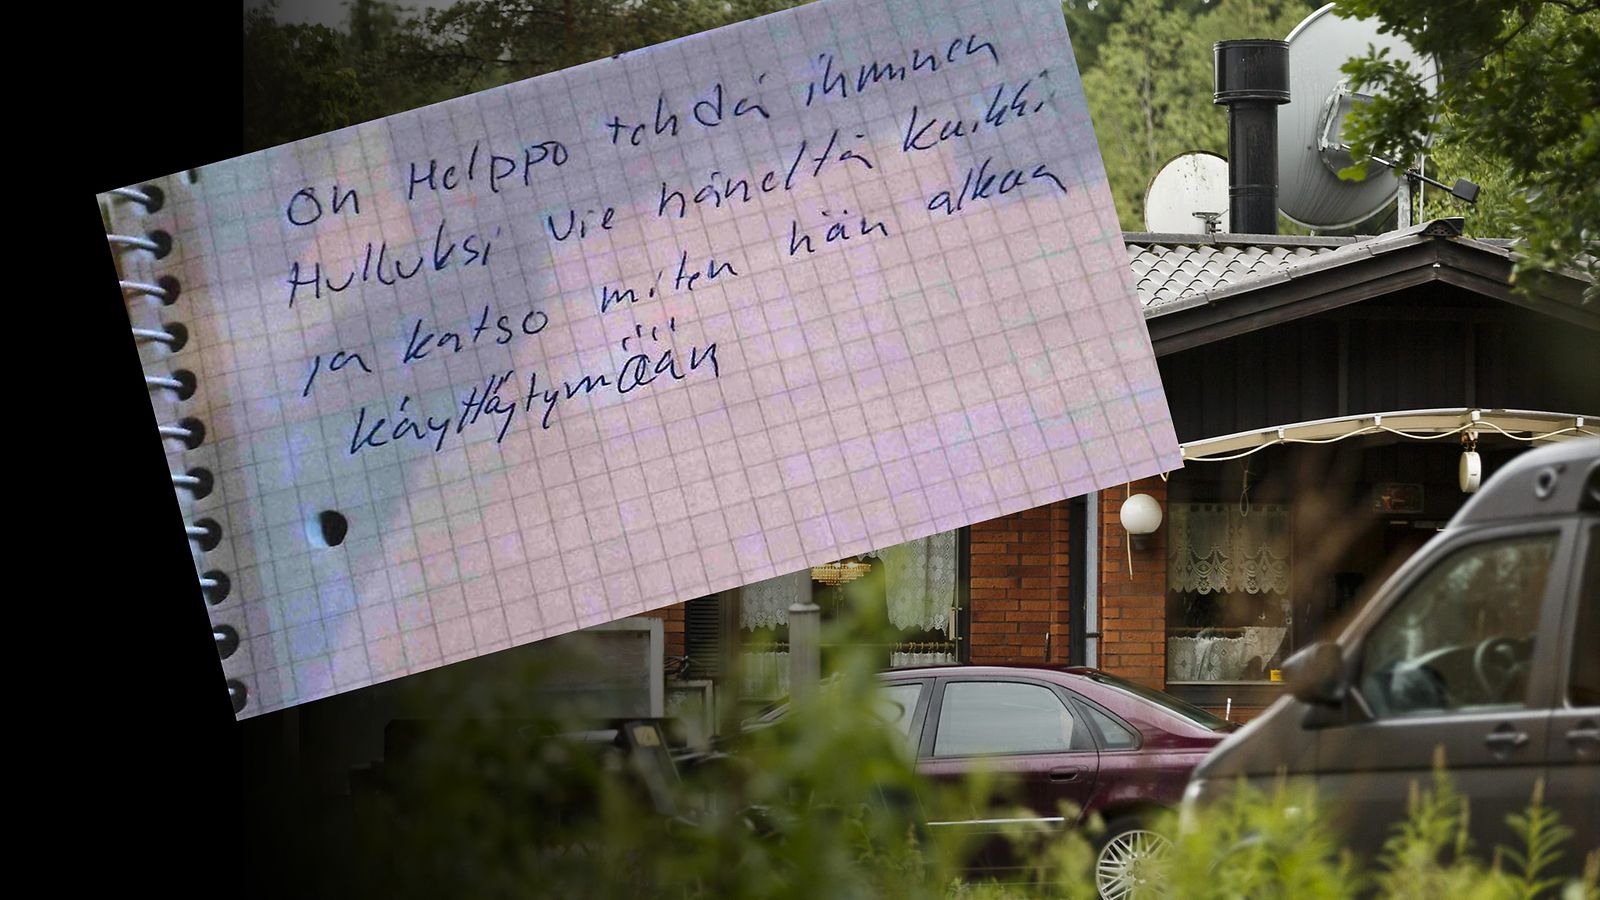 on Helppo tehdä ihminen
Hulluksi vie häneltä kaikki
ja katso miten hän alkaa
käyttäytymään